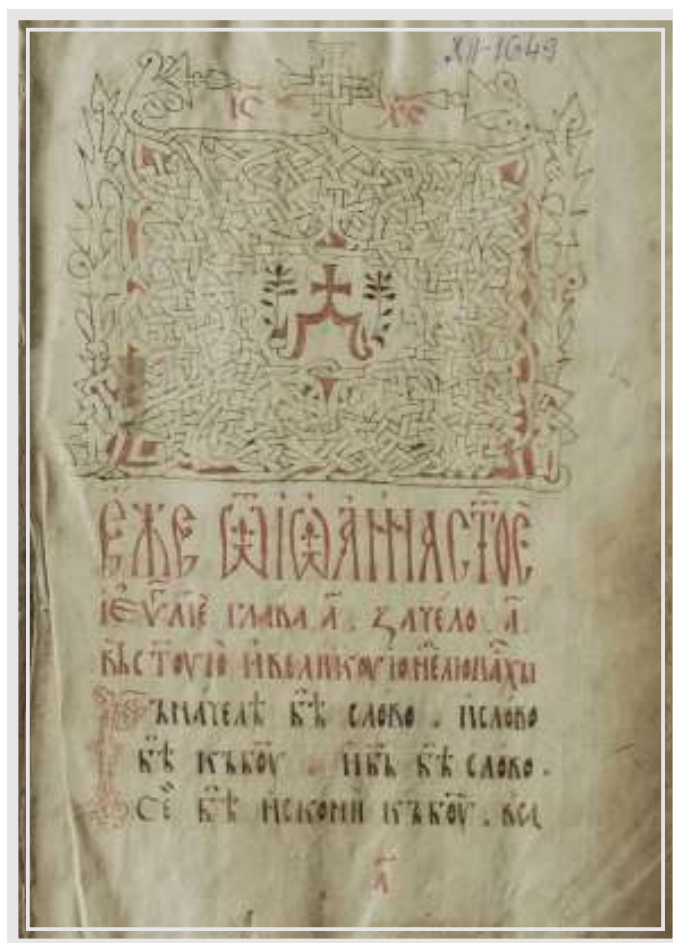 XII-1649
ІС҃ ХС҃
Е҆ЖЕ Ѿ ІѠАННА СТ҃ОЕ
ІЕѴ҃ЛІЕ ГЛАВА А҃. ЗАЧЕЛО А҃.
ВЬ СТ҃ОУЮ И ВЕЛИКОУЮ НЕ҃ЛЮ ПА҃ХЫ
Въ начелѣ бѣ̀ слово . и слово
бѣ̀ къ б҃оу . и б҃ь бѣ̀ слово .
Се бѣ̀ искони къ б҃оу . вса
а҃